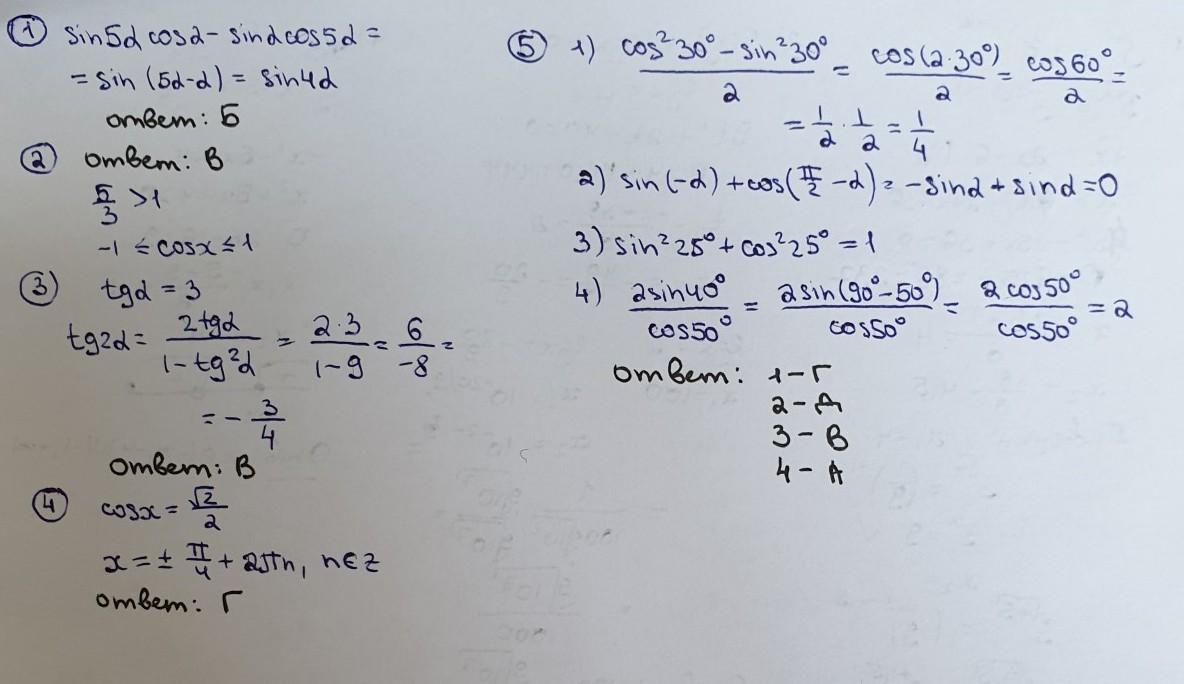 ① sin5α cosα - sinα cos5α =
= sin (5α-α) = sin4α
ответ: Б
② ответ: В
5/3 >1
-1 ≤ cosx ≤ 1
③ tgα = 3
tg2α = 2tgα/(1-tg²α) = 2·3/(1-9) = 6/(-8) =
= - 3/4
ответ: В
④ cosx = √2/2
x = ± π/4 + 2πn, n∈z
ответ: Г
⑤ 1) (cos²30° - sin²30°)/2 = cos(2·30°)/2 = cos60°/2 =
= 1/2 · 1/2 = 1/4
2) sin(-α) + cos(π/2 - α) = -sinα + sinα = 0
3) sin²25° + cos²25° = 1
4) 2sin40°/cos50° = 2sin(90°-50°)/cos50° = 2cos50°/cos50° = 2
ответ: 1-Г
2-Д
3-В
4-А